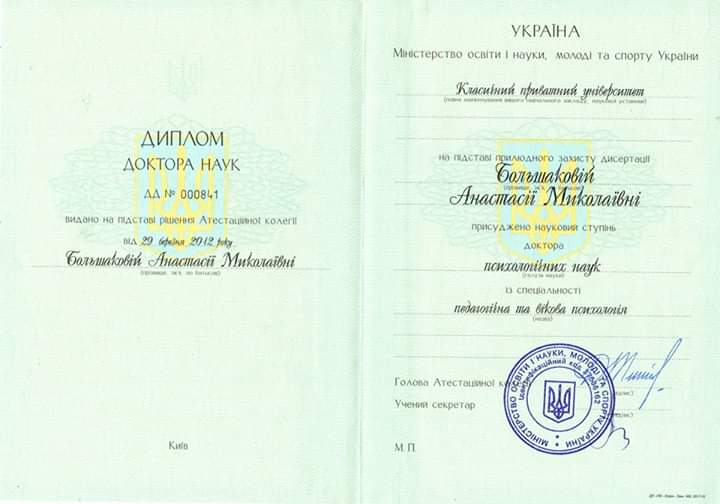 ДИПЛОМ
ДОКТОРА НАУК
ДД № 000841
видано на підставі рішення Атестаційної колегії
від 29 березня 2012 року
Большаковій Анастасії Миколаївні
(прізвище, ім'я, по батькові)
Київ
УКРАЇНА
Міністерство освіти і науки, молоді та спорту України
Класичний приватний університет
(повне найменування вищого навчального закладу, наукової установи)
на підставі прилюдного захисту дисертації
Большаковій
(прізвище, ім'я, по батькові)
Анастасії Миколаївні
присуджено науковий ступінь
доктора
психологічних наук
(галузь науки)
із спеціальності
педагогічна та вікова психологія
(назва)
Голова Атестаційної
Учений секретар
М.П.
МІНІСТЕРСТВО ОСВІТИ І НАУКИ, МОЛОДІ ТА СПОРТУ УКРАЇНИ
Ідентифікаційний код